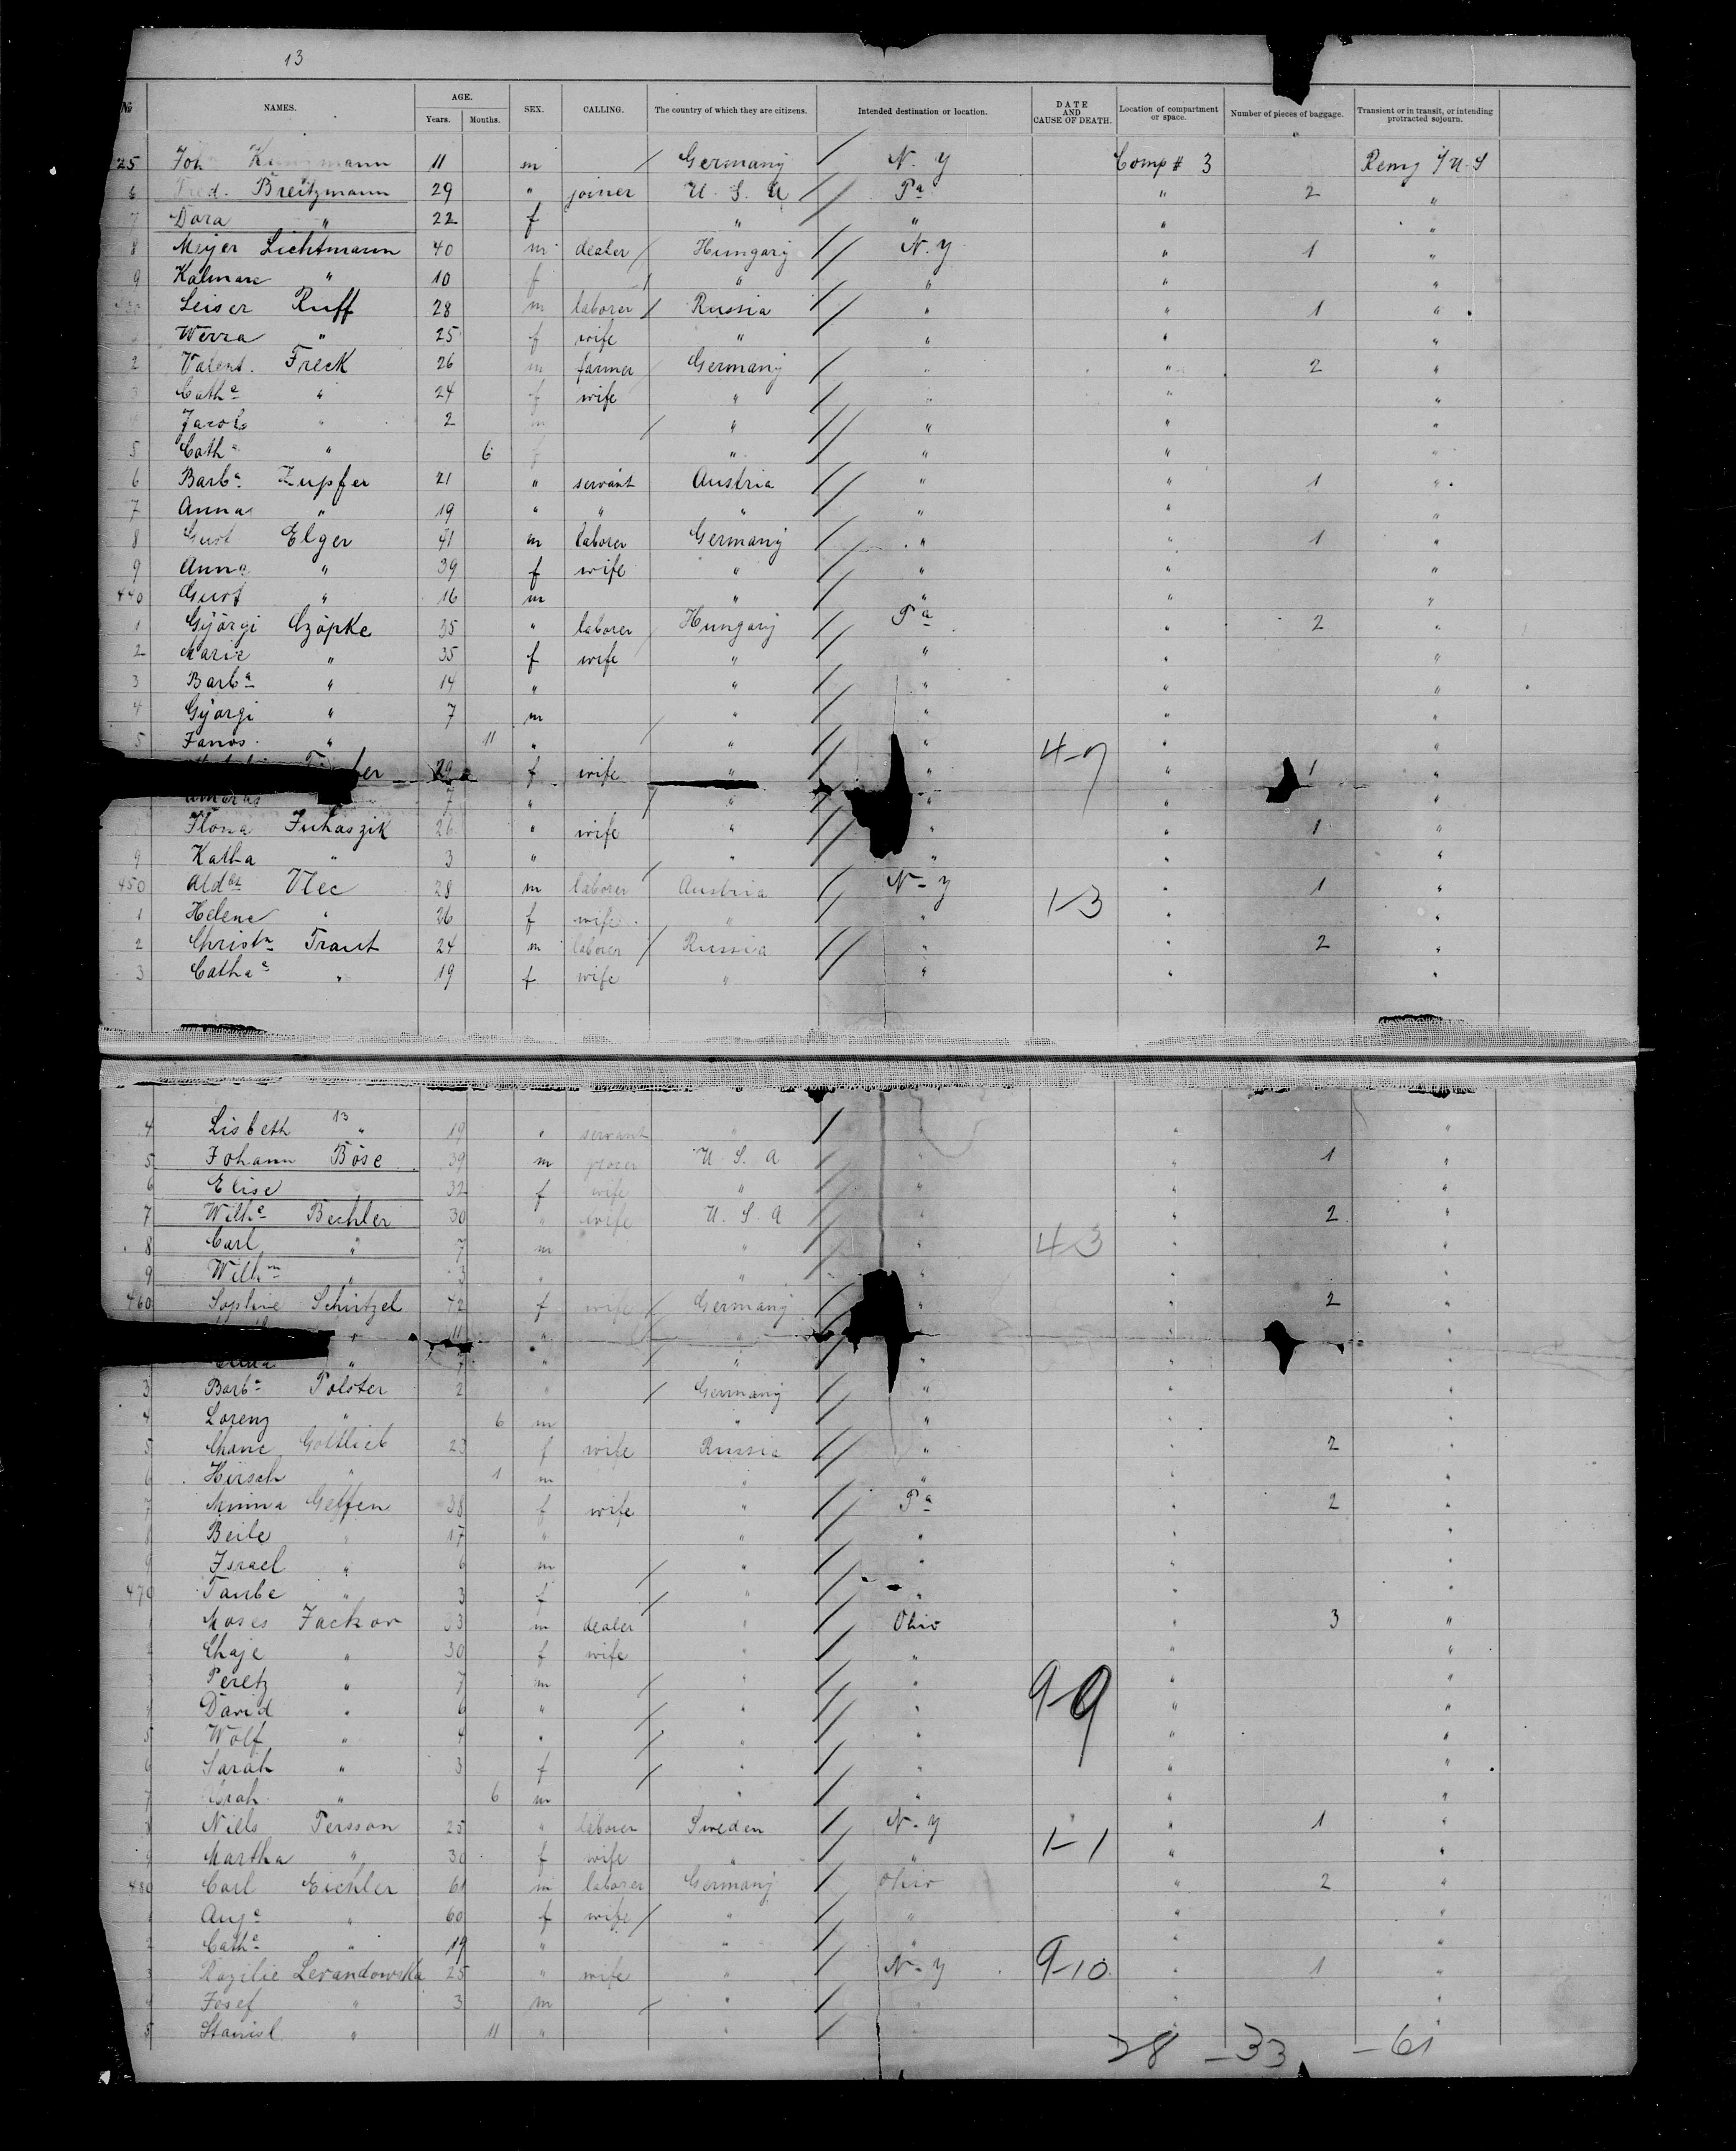 13
No. NAMES. AGE. Years. Months. SEX. CALLING. The country of which they are citizens. Intended destination or location. DATE AND CAUSE OF DEATH. Location of compartment or space. Number of pieces of baggage. Transient or in transit, or intending protracted sojourn.
25 Joh 11 m / Germany / N. Y Comp # 3
6 Fred. Breitzmann 29 " joiner U. S. A // Pa " 2 "
7 Dora " 22 f " " " "
8 Meyer Lichtmann 40 m dealer / Hungary // N. Y " 1 "
9 Kalman " 10 f / " // " " "
Leiser Ruff 28 m laborer / Russia // " " 1 "
Werra " 25 f wife " / " " "
2 Valent. Freck 26 m farmer / Germany / " " 2 "
3 Catha " 24 f wife " / " " "
Jacob " 2 m / " // " " "
5 Catha " 6 f " // " " "
6 Barba Zupfer 21 " servant Austria // " " 1 "
7 Anna " 19 " " " / " " "
8 Gust Elger 41 m laborer Germany // " " 1 "
9 Anna " 39 f wife " / " " "
440 Gust " 16 m " / " " "
1 Györgi Czöpke 35 " laborer / Hungary / Pa " 2 "
2 Marie " 35 f wife " // " " "
3 Barba " 14 " " / " " "
4 Györgi " 7 m / " / " " "
5 Janos " 11 " " // " 4-7 " "
ber 29 f wife " " " 1 "
7 " / " " " "
Ilona Juhaszik 26 " wife " // " " 1 "
9 Katha " 3 " / " // " " "
450 Aldar Vlec 28 m laborer Austria // N-Y " 1 "
1 Helene " 26 f wife " / " 1-3 " "
2 Christn Traut 24 m laborer / Russia // " " 2 "
3 Catha " 19 f wife " // " " "
13
4 Lisbeth " 19 " servant " / " " "
5 Johann Böse 39 m U. S. A / " " 1 "
6 Elise 32 f wife " / " " "
7 Wilha Bechler 30 " wife U. S. A / " " 2 "
8 Carl " 7 m " / " 4-3 " "
9 Wilhm " 3 " " / " " "
460 Sophie Schützel 42 f wife / Germany / " " 2 "
" 11 " / " "
" 7 " / " / " " "
3 Barba Polster 2 " / Germany / " " "
4 Lorenz " 6 m " / " " "
5 Chane Gottlieb 23 f wife Russia // " " 2 "
6 Hirsch " 1 m " / " " "
7 Minna Geffen 38 f wife " // Pa " 2 "
8 Beile " 17 " " // " " "
9 Israel " 6 m / " / " " "
470 Taube " 3 f / " / " " "
1 Moses Jackor 33 m dealer " / Ohio " 3 "
Chaje " 30 f wife " / " " "
Peretz " 7 m / " / " 9-9 " "
David " 6 " / " / " " "
5 Wolf " 4 " / " / " " "
6 Sarah " 3 f / " / " " "
7 " 6 m " / " " "
8 Nills Persson 25 " laborer Sweden / N-Y " 1 "
9 Martha " 30 f wife " / " 1-1 " "
480 Carl Eichler 61 m laborer Germany / Ohio " 2 "
1 Auga " 60 f wife / " / " " "
2 Catha " 19 " " / " " "
3 Levandowska 25 " wife " / N-Y 9-10 " 1 "
4 Josef " 3 m / " / " "
5 Stanisl " 11 " " / "
28 - 33 - 61